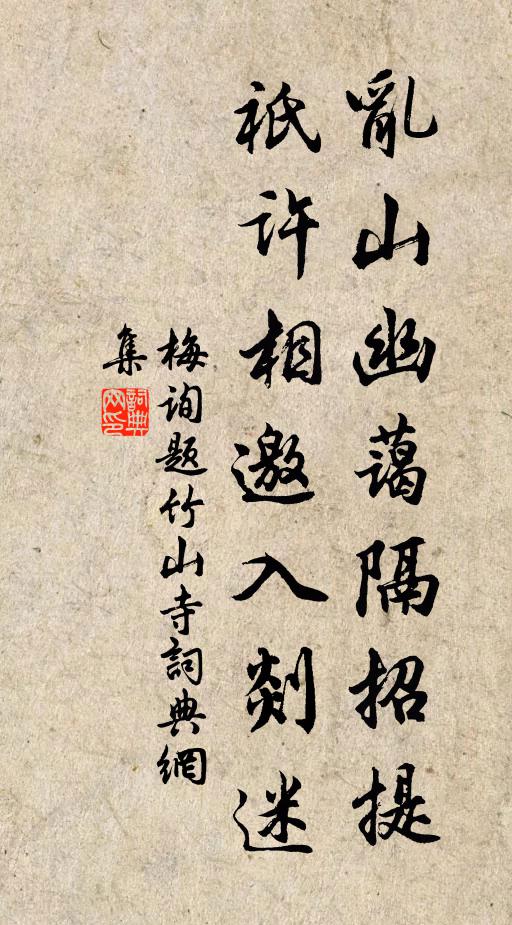 亂山幽藹隔招提
祇許相邀入剡迷
梅詢題竹山寺詞典網
集
詞典
网印